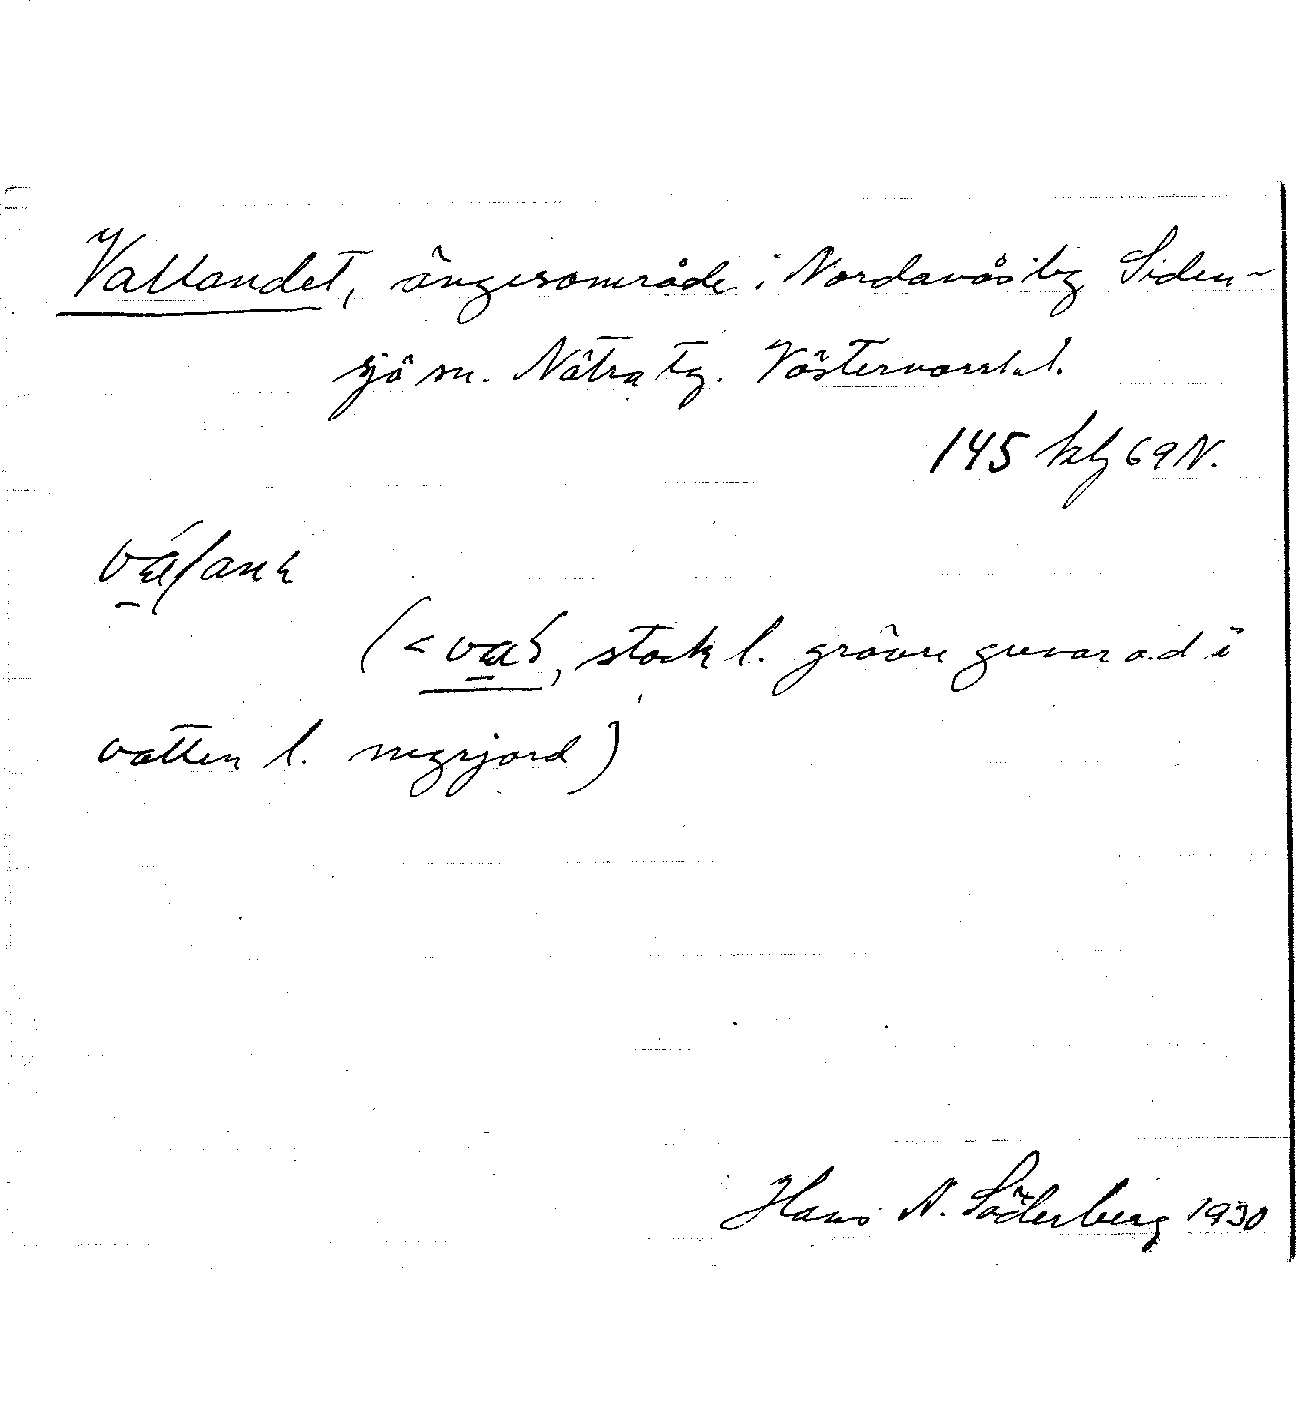 Vallandet, ängesområde i Nordanås by Siden-
sjö sn. Nätra tg. Västernorrl. l.
145 kbl 69 N.
(< stock l. grövre grenar o.d i
vatten l. myrjord)
Hans N. Söderberg 1930